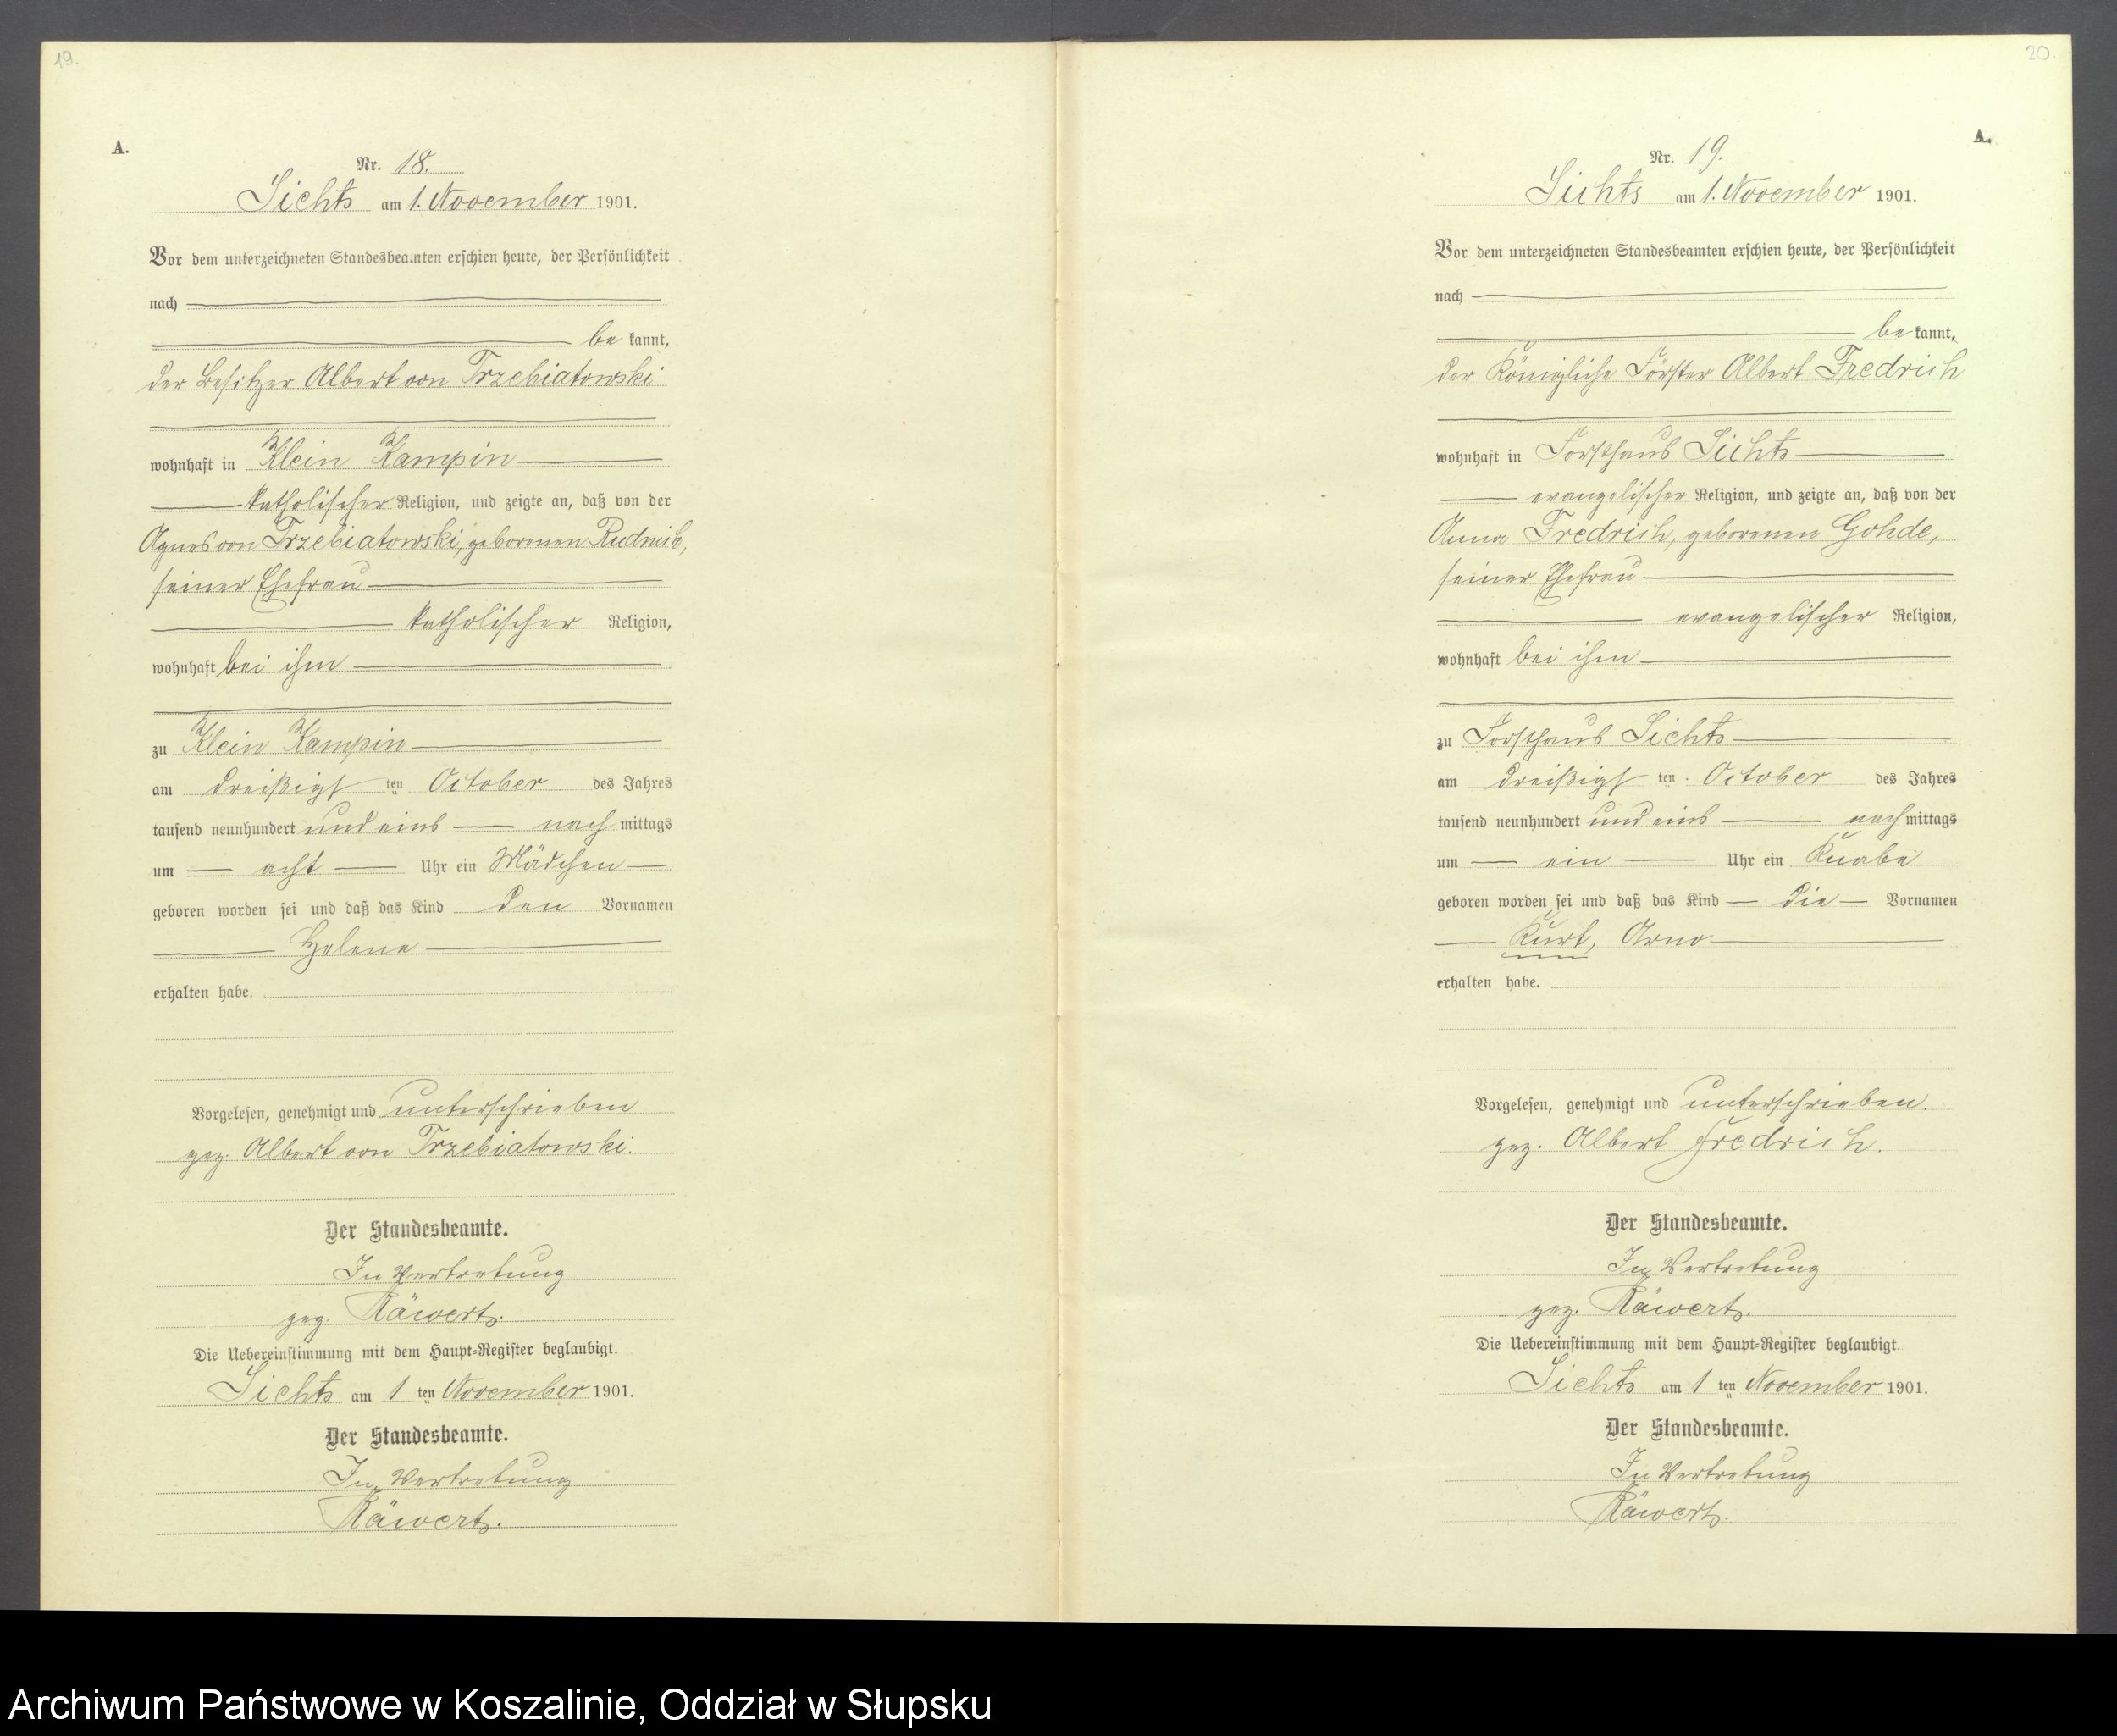 19.
A.
Nr. 18.
Sichts am 1. November 1901.
Vor dem unterzeichneten Standesbeamten erschien heute, der Persönlichkeit
nach
be kannt,
der Besitzer Albert von Trzebiatowski
wohnhaft in Klein Kampin
katholischer Religion, und zeigte an, daß von der
Agnes von Trzebiatowski, geborenen Rudnick,
seiner Ehefrau
katholischer Religion,
wohnhaft bei ihm
zu Klein Kampin
am dreißigst ten October des Jahres
tausend neunhundert und eins nach mittags
um acht Uhr ein Mädchen
geboren worden sei und daß das Kind den Vornamen
Helene
erhalten habe.
Vorgelesen, genehmigt und unterschrieben
gez. Albert von Trzebiatowski.
Der Standesbeamte.
In Vertretung
gez. Räwert.
Die Uebereinstimmung mit dem Haupt-Register beglaubigt.
Sichts am 1 ten November 1901.
Der Standesbeamte.
In Vertretung
Räwert.
20.
A.
Nr. 19.
Sichts am 1. November 1901.
Vor dem unterzeichneten Standesbeamten erschien heute, der Persönlichkeit
nach
be kannt,
der Königliche Förster Albert Fredrich
wohnhaft in Forsthaus Sichts
evangelischer Religion, und zeigte an, daß von der
Anna Fredrich, geborenen Gohde,
seiner Ehefrau
evangelischer Religion,
wohnhaft bei ihm
zu Forsthaus Sichts
am dreißigst ten October des Jahres
tausend neunhundert und eins nach mittags
um ein Uhr ein Knabe
geboren worden sei und daß das Kind die Vornamen
Kurt, Arno
erhalten habe.
Vorgelesen, genehmigt und unterschrieben.
gez. Albert Fredrich.
Der Standesbeamte.
In Vertretung
gez. Räwert.
Die Uebereinstimmung mit dem Haupt-Register beglaubigt.
Sichts am 1 ten November 1901.
Der Standesbeamte.
In Vertretung
Räwert.
Archiwum Państwowe w Koszalinie, Oddział w Słupsku